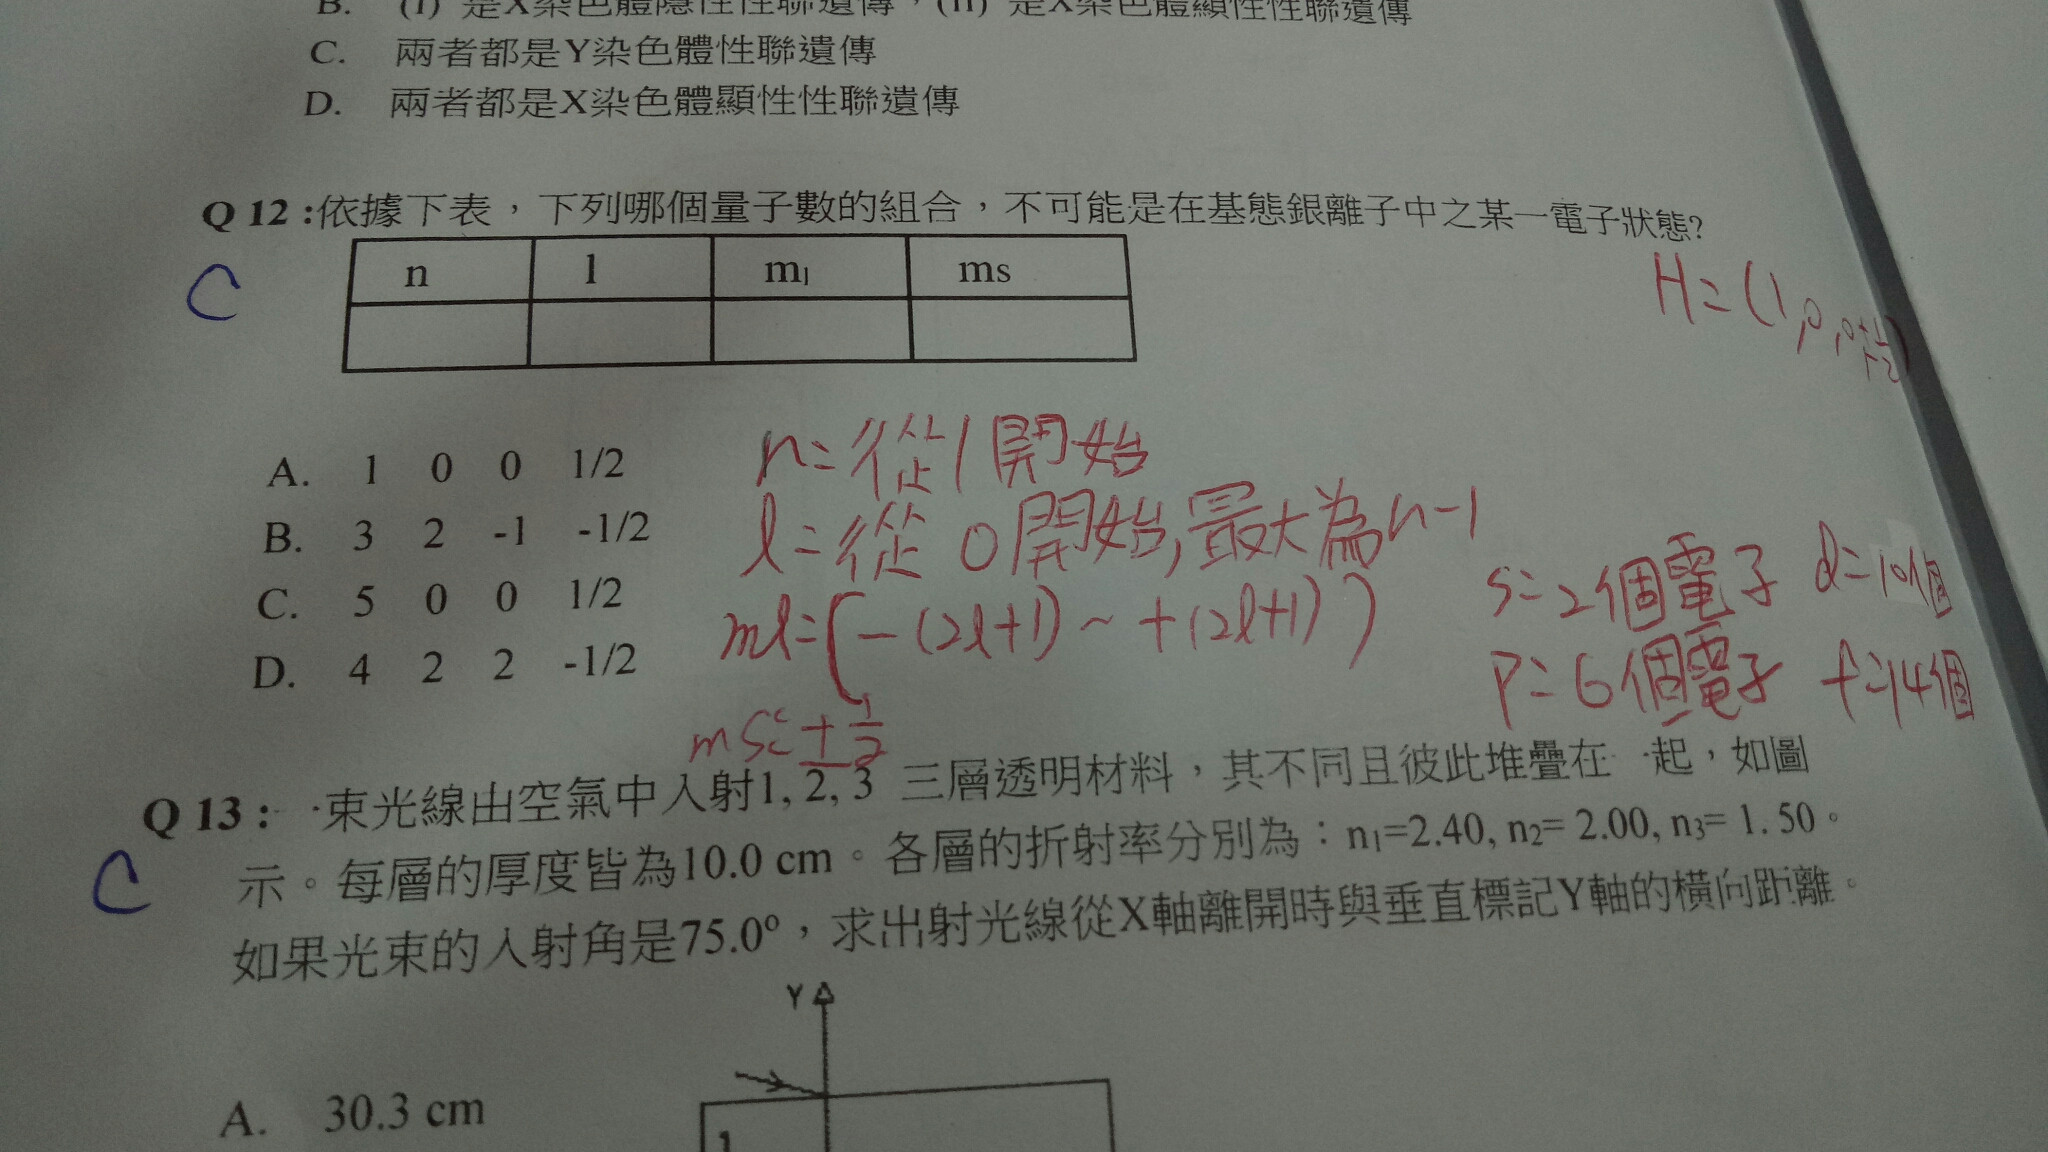 B. (I) 是X染色體隱性性聯遺傳，(II) 是X染色體顯性性聯遺傳
C. 兩者都是Y染色體性聯遺傳
D. 兩者都是X染色體顯性性聯遺傳
Q 12 :依據下表，下列哪個量子數的組合，不可能是在基態銀離子中之某一電子狀態?
C
n l ml ms
H=(1,0,0,
A. 1 0 0 1/2
B. 3 2 -1 -1/2
C. 5 0 0 1/2
D. 4 2 2 -1/2
n=從1開始
l=從0開始,最大為n-1
ml=(-(2l+1)~+(2l+1))
ms=±1/2
s=2個電子 d=10個
p=6個電子 f=14個
Q 13 : 束光線由空氣中入射1, 2, 3 三層透明材料，其不同且彼此堆疊在 起，如圖
C
示。每層的厚度皆為10.0 cm。各層的折射率分別為：n1=2.40, n2= 2.00, n3= 1. 50。
如果光束的入射角是75.0º，求出射光線從X軸離開時與垂直標記Y軸的橫向距離。
Y
1
A. 30.3 cm